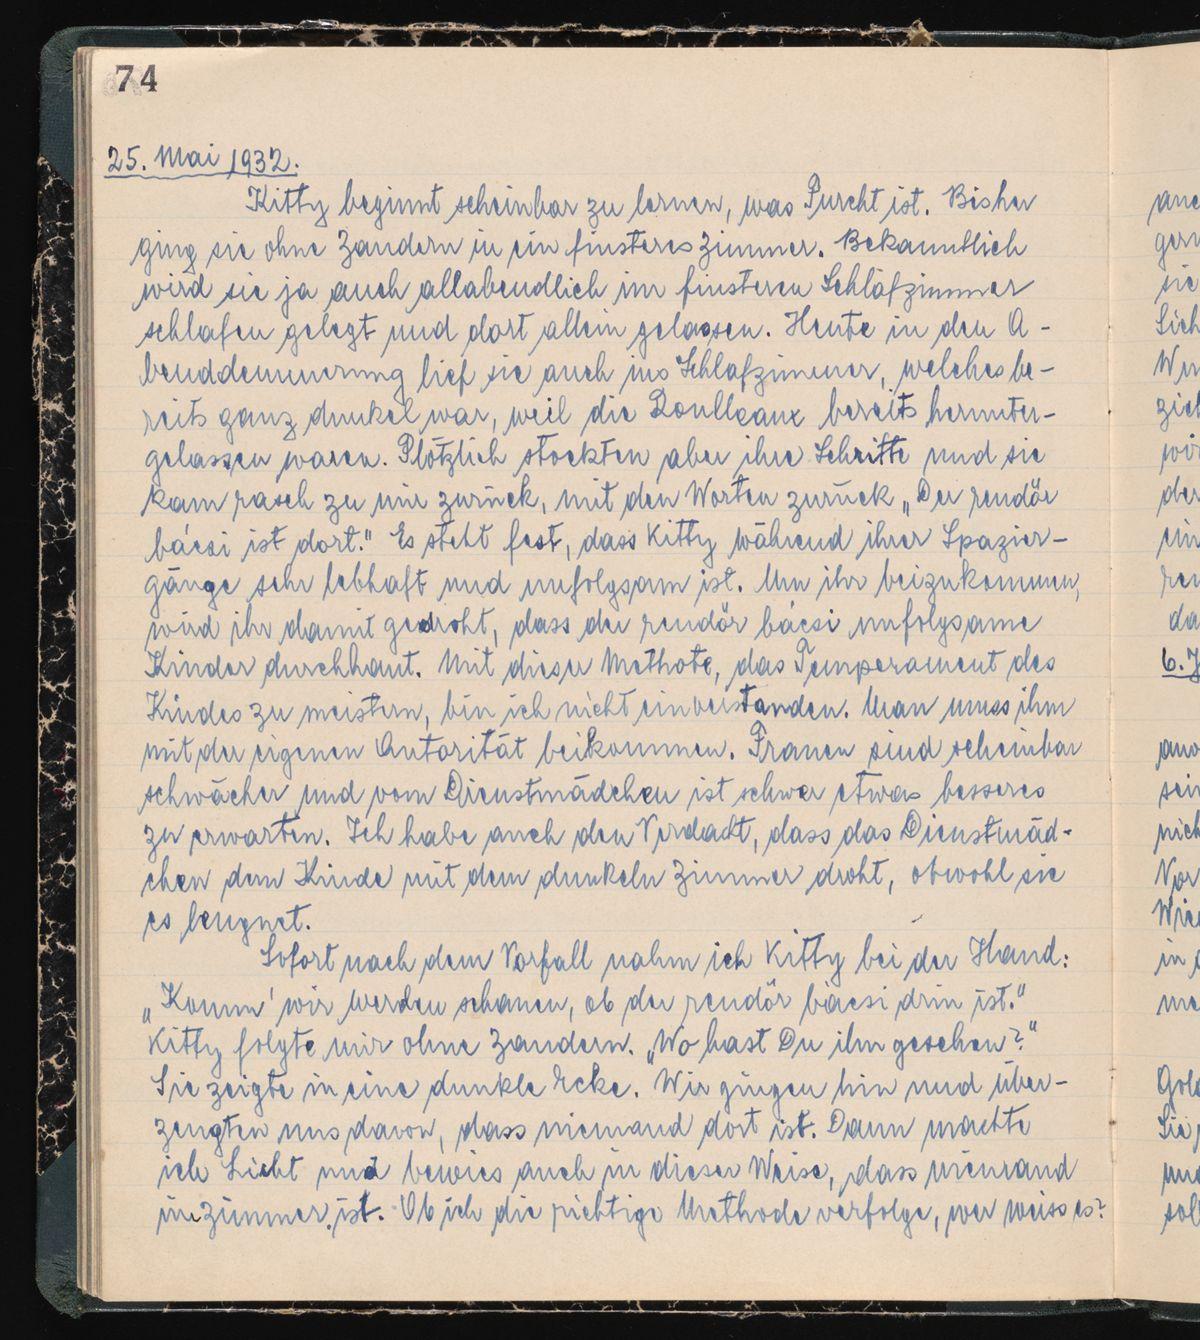 74
25. Mai 1932.
Kitty beginnt scheinbar zu lernen, was Furcht ist. Bisher
ging sie ohne Zandern in ein finsteres Zimmer. Bekanntlich
wird sie ja auch allabendlich im finsteren Schlafzimmer
schlafen gelegt und dort allein gelassen. Heute in den A-
benddemmerung lief sie auch ins Schlafzimmer, welches be-
reits ganz dunkel war, weil die Roulleaux bereits herunter-
gelassen waren. Plötzlich stockten aber ihre Schritte und sie
kam rasch zu mir zurück, mit den Worten zurück „Der rendör
bácsi ist dort." Es steht fest, dass Kitty während ihrer Spazier-
gänge sehr lebhaft und unfolgsam ist. Um ihr beizukommen,
wird ihr damit gedroht, dass der rendör bácsi unfolgsame
Kinder durchhaut. Mit dieser Methote, das Temperament des
Kindes zu meistern, bin ich nicht einverstanden. Man muss ihm
mit der eigenen Autorität beikommen. Frauen sind scheinbar
schwächer und vom Dienstmädchen ist schwer etwas besseres
zu erwarten. Ich habe auch den Verdacht, dass das Dienstmäd-
chen dem Kinde mit dem dunkeln Zimmer droht, obwohl sie
es leugnet.
Sofort nach dem Vorfall nahm ich Kitty bei der Hand:
„Komm' wir werden schauen, ob der rendör bácsi drin ist."
Kitty folgte mir ohne Zandern. „Wo hast Du ihn gesehen?"
Sie zeigte in eine dunkle Ecke. Wir gingen hin und über-
zeugten uns davon, dass niemand dort ist. Dann machte
ich Licht und bewies auch in dieser Weise, dass niemand
im Zimmer ist. Ob ich die richtige Methode verfolge, wer weiss es?